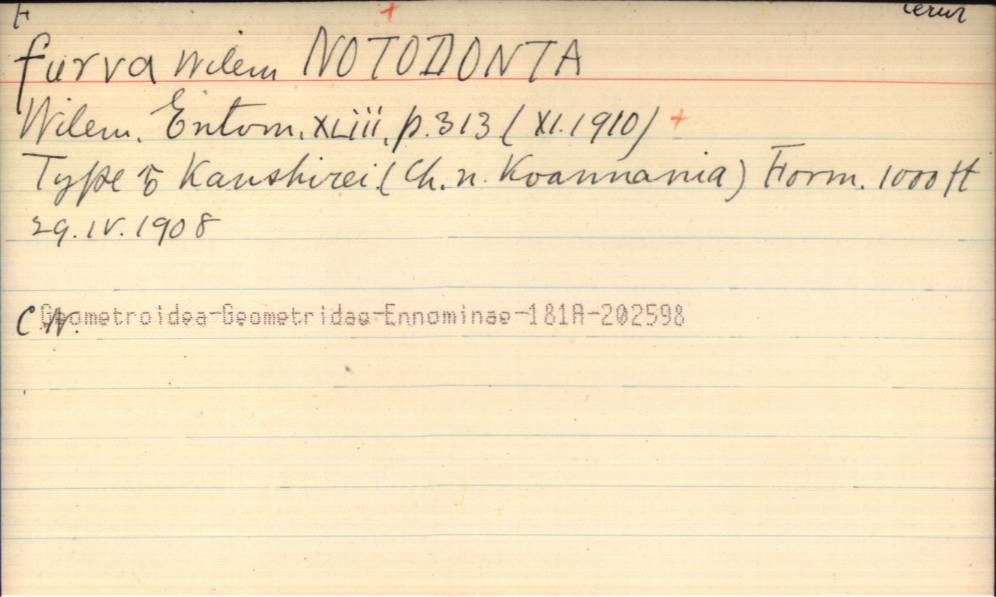 furva Wilem NOTODONTA
Wilem. Entom. XLiii, p. 313 (XI. 1910) +
Type ♂ Kanshirei (Ch. n. Koannania) Form. 1000 ft
29. IV. 1908
C.N. Geometroidea-Geometridae-Ennominae-181A-202598